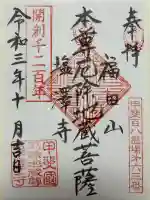 奉拝
福田山
本尊厄除地蔵菩薩
塩澤寺
開創千二百年
令和三年十月吉日
甲斐百八霊場第六二番
甲斐國